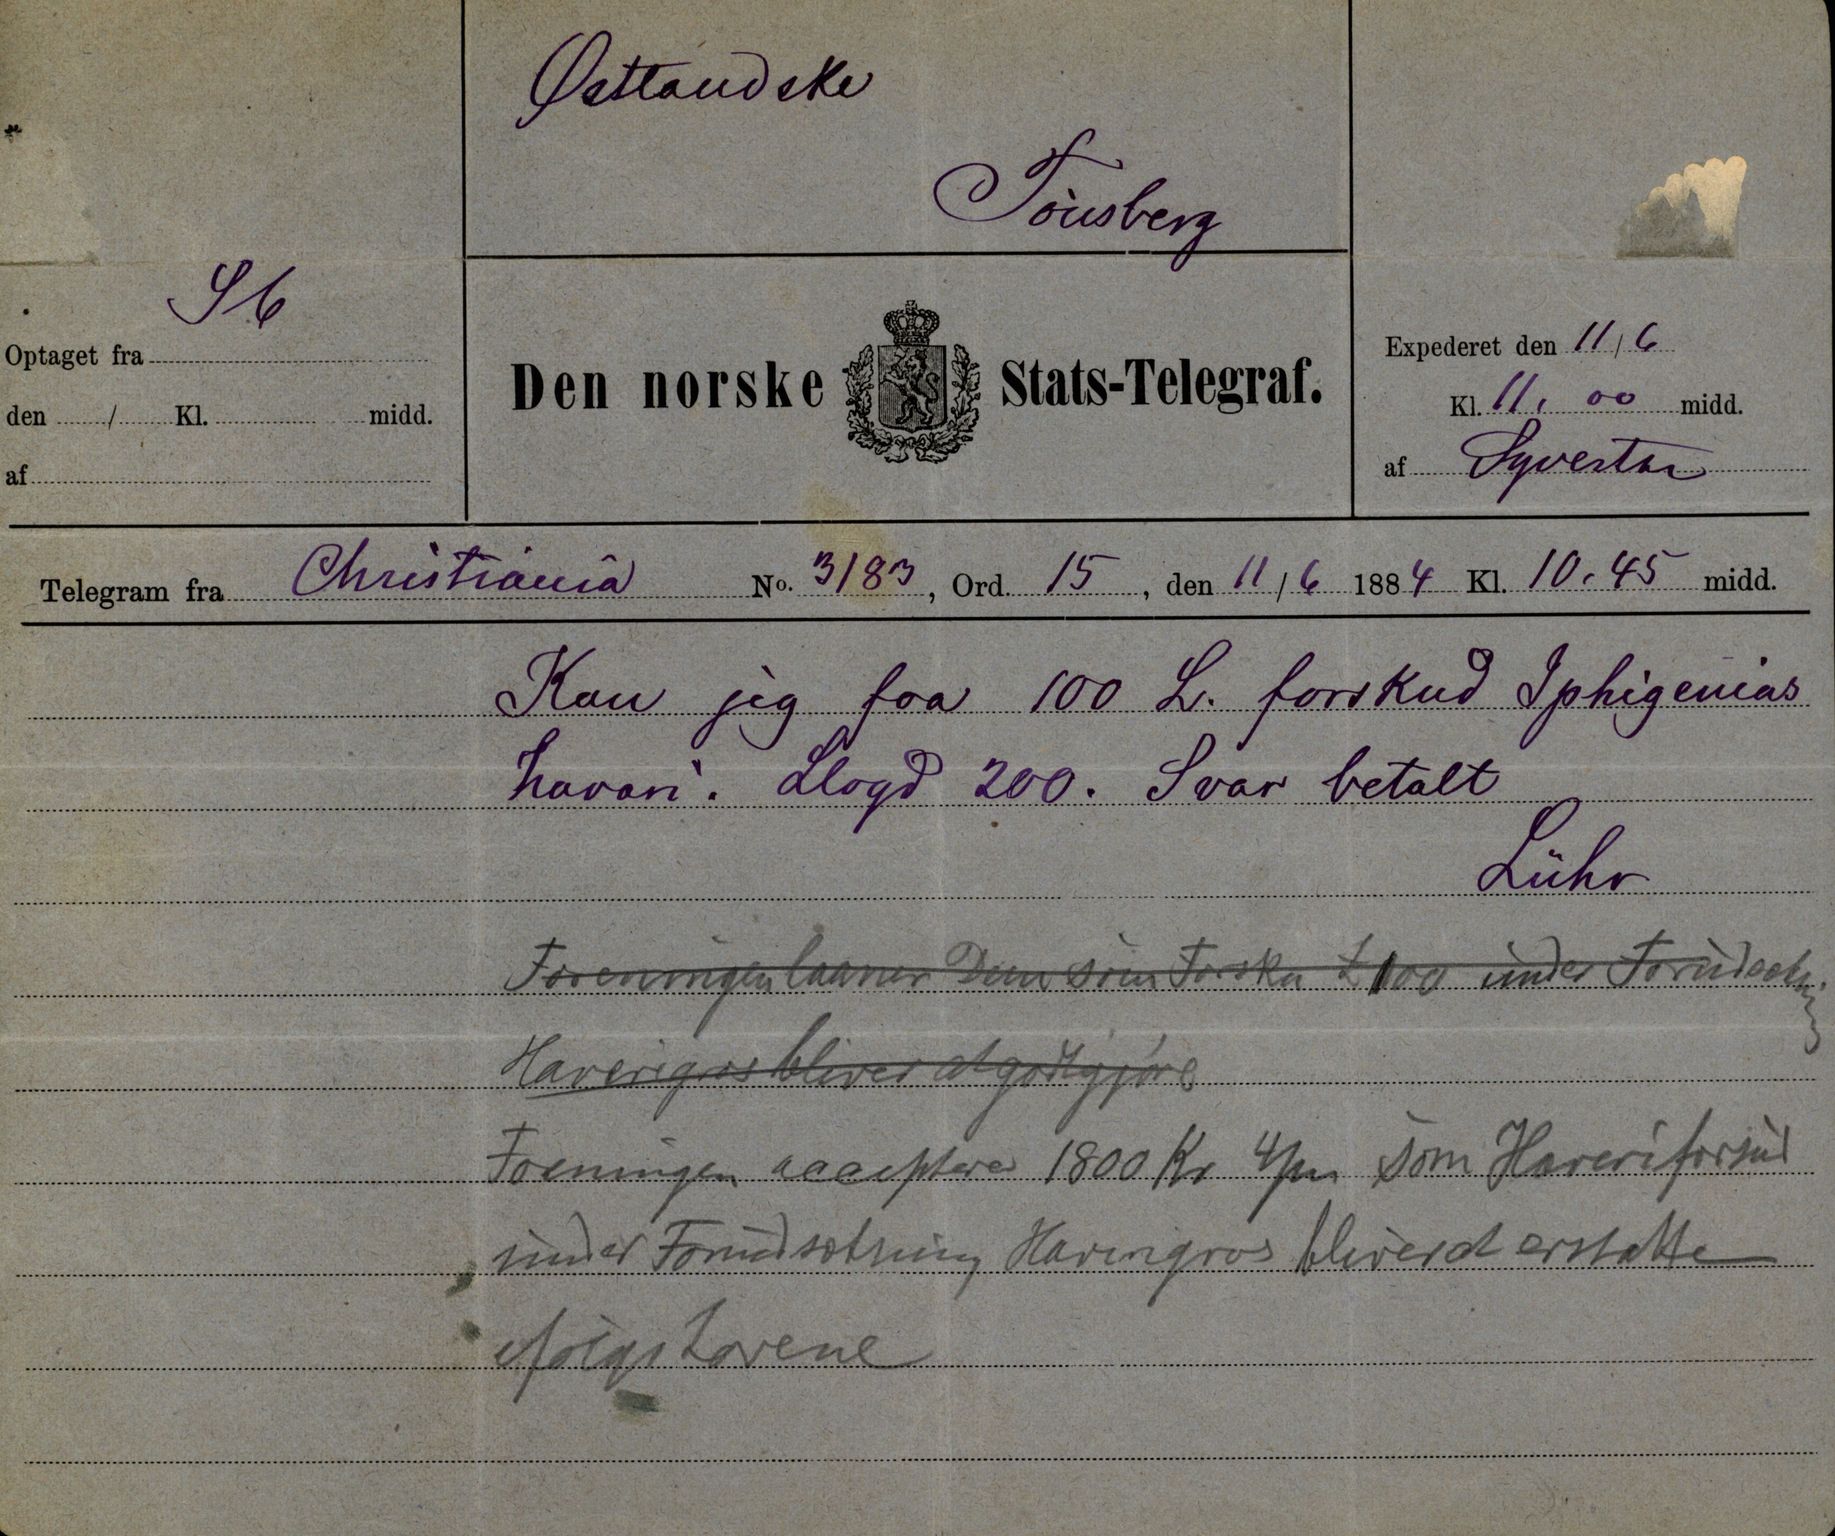 Østlandske
Tönsberg
S6
Optaget fra
den / Kl. midd.
af
Den norske Stats-Telegraf.
Expederet den 11/6
Kl. 11. 00 midd.
af
Telegram fra Christiania No. 3183, Ord. 15, den 11/6 1884 Kl. 10.45 midd.
Kan jig faa 100 L. forskud Iphigenias
havari. Lloyd 200. Svar betalt
Lühr
Foreningen laaner Dem som Forsku £100 under Forudsætning
Haverigros bliver at godtgjøre
Foreningen accepterer 1800 Kr som Havariforsud
under Forudsætning Haverigros bliver at erstatte
ifølge Lovene